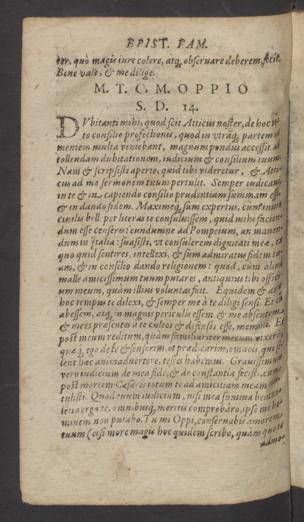 EPIST. FAM.
ter, quò magis iure colere, atq, obseruare deberem, fecit.
Bene vale, & me dilige.
M. T. C. M. OPPIO
S. D. 14.
DVbitanti mihi, quod scit Atticus noster, de hoc
to consilio profectionis, quod in vtráq, partem
mentem multa veniebant, magnum pondus accessit ad
tollendam dubitationem, iudicium & consilium tuum.
Nam & scripsisti aperte, quid tibi videretur, & Atti-
cus ad me sermonem tuum pertulit. Semper iudicaui,
in te & in capiendo consilio prudentiam summam esse
& in dando fidem. Maximeq, sum expertus, cum
ciuilis belli per literas te consuluissem, quid mihi facien-
dum esse censeres: eundumne ad Pompeium, an manen-
dum in Italia: suasisti, vt consulerem dignitati meæ, ex
quo quid sentires, intellexi, & sum admiratus fidem tu-
am, & in consilio dando religionem: quod, cum aliud
malle amicissimum tuum putares, antiquius tibi officium
meum, quàm illius voluntas fuit. Equidem & ante
hoc tempus te dilexi, & semper me à te diligi sensi. Et cum
abessem, atq, in magnis periculis essem & me absentem
& meos præsentes à te cultos & defensos esse, memini. Et
post meum reditum, quàm familiariter mecum vixeris
quæq, ego de te & senserim, et prædicarim, omneis, qui so-
lent hæc animaduertere, testes habemus. Grauissimum
vero iudicium de mea fide, & de constantia fecisti, cum
post mortem Cæsaris totum te ad amicitiam meam
tulisti. Quod tuum iudicium, nisi mea summa beneuo-
lentia erga te, omnibusq, meritis comprobaro, ipse me ho-
minem non putabo. Tu mi Oppi, conseruabis amorem
tuum (etsi more magis hoc quidem scribo, quàm quò te
admo-